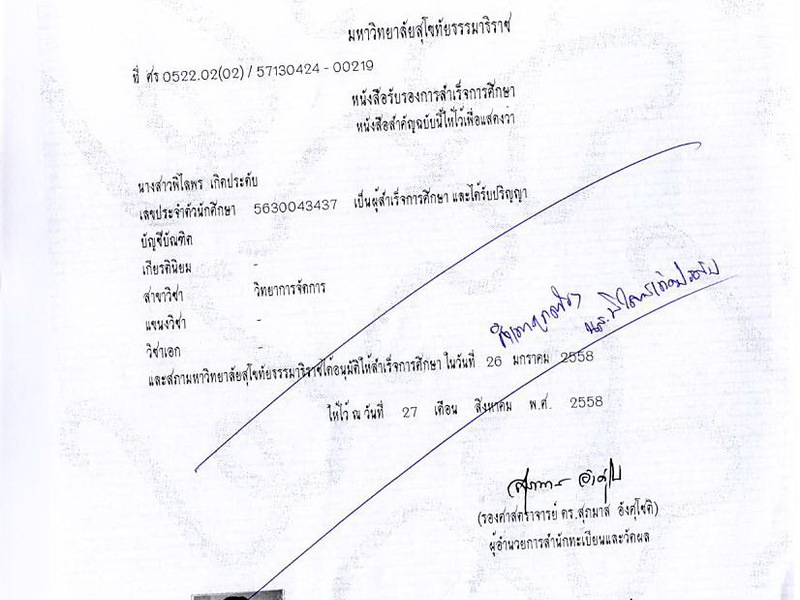 มหาวิทยาลัยสุโขทัยธรรมาธิราช
ที่ ศธ 0522.02(02) / 57130424 - 00219
หนังสือรับรองการสำเร็จการศึกษา
หนังสือสำคัญฉบับนี้ให้ไว้เพื่อแสดงว่า
นางสาวพิไลพร เกิดประดับ
เลขประจำตัวนักศึกษา 5630043437 เป็นผู้สำเร็จการศึกษา และได้รับปริญญา
บัญชีบัณฑิต
เกียรตินิยม -
สาขาวิชา วิทยาการจัดการ
แขนงวิชา -
วิชาเอก -
และสภามหาวิทยาลัยสุโขทัยธรรมาธิราชได้อนุมัติให้สำเร็จการศึกษา ในวันที่ 26 มกราคม 2558
ให้ไว้ ณ วันที่ 27 เดือน สิงหาคม พ.ศ. 2558
(รองศาสตราจารย์ ดร.สุภมาส อังศุโชติ)
ผู้อำนวยการสำนักทะเบียนและวัดผล